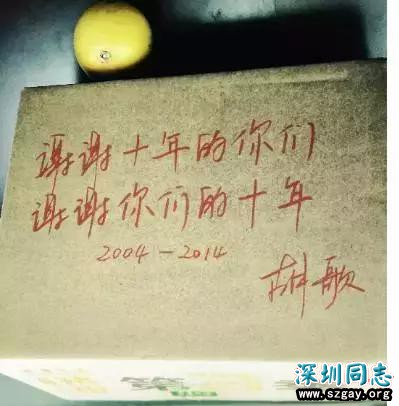 谢谢十年的你们
谢谢你们的十年
2004-2014
胡歌
深圳同志
www.szgay.org